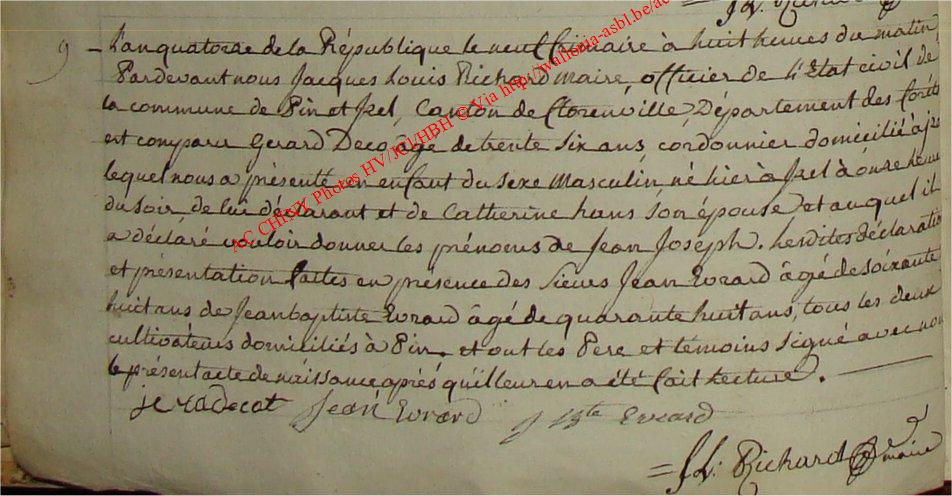 = J.L: Richard
9 - L'an quatorze de la République le neuf frimaire à huit heures du matin
Pardevant nous Jacques Louis Richard maire, officier de l'Etat civil de
la commune de Pin et Izel, Canton de florenville, Département des forêts
est comparu Gerard Deco âgé de trente six ans, cordonnier domicilié à Iz
lequel nous a présenté un enfant du sexe Masculin, né hier à Izel à onze heures
du soir, de lui déclarant et de Catherine hans son épouse et auquel il
a déclaré vouloir donner les prénoms de Jean Joseph. Lesdites déclaration
et présentation faites en présence des sieurs Jean Evrard âgé de soixante
huit ans de Jean baptiste Evrard âgé de quarante huit ans, tous les deux
cultivateurs domiciliés à Pin. et ont les Pere et témoins signé avec nous
le présent acte de naissance après qu'il leur en a été fait lecture.
Jean Evrard J Bte Evrard
= J.L: Richard maire
AC CHINY Photos HV/JCJ/HBH © Via http://wallonia-asbl.be/ac